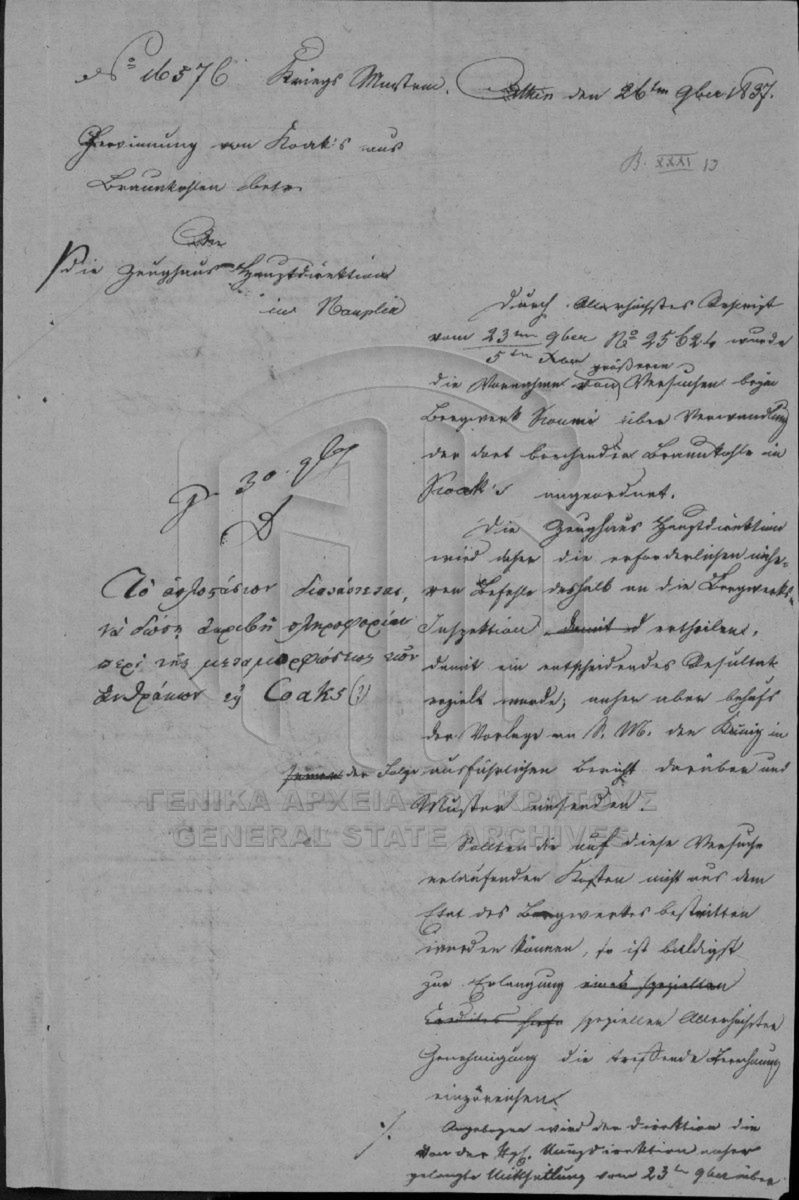 No 16576 Kriegs Minsterm. Athen den 26ten 9ber 1837.
B. XXXI 13
Gewinnung von Koak's aus
Braunkohlen betr.
An
die Zeughaus Hauptdirektion
in Nauplia
30. 9br
Τὸ ὁπλοστάσιον διατάττεται,
νὰ δώσῃ ἀκριβῆ πληροφορίαν
περὶ τῆς μεταμορφώσεως τῶν
ἀνθράκων εἰς Coaks (?)
Durch Allerhöchstes Rescript
vom 23ten 9ber No 25624 wurde
5ten Xber
größeren
die Vornahme von Versuchen beim
Bergwerk Koumi über Verwandlung
der dort brechenden Braunkohle in
Koak's angeordnet.
Die Zeughaus Hauptdirektion
wird daher die erforderlichen nähe-
ren Befehle deshalb an die Bergwerks-
Inspektion damit d ertheilen,
damit ein entscheidendes Resultat
erzielt werde; anher aber behufs
der Vorlage an S. M. den König in
der Folge ausführlichen Bericht darüber und
Muster einsenden.
Sollten die auf diese Versuche
erlaufenden Kosten nicht aus dem
Etat des Bergwerkes bestritten
werden können, so ist baldigst
zur Erlangung eines speziellen
Credites speziellen Allerhöchsten
Genehmigung die treffende Berechnung
einzureichen.
./. Angebogen wird der Direktion die
von der Kgl. Hauptdirektion anher
gelangte Mittheilung vom 23ten 9ber über
ΓΕΝΙΚΑ ΑΡΧΕΙΑ ΤΟΥ ΚΡΑΤΟΥΣ
GENERAL STATE ARCHIVES